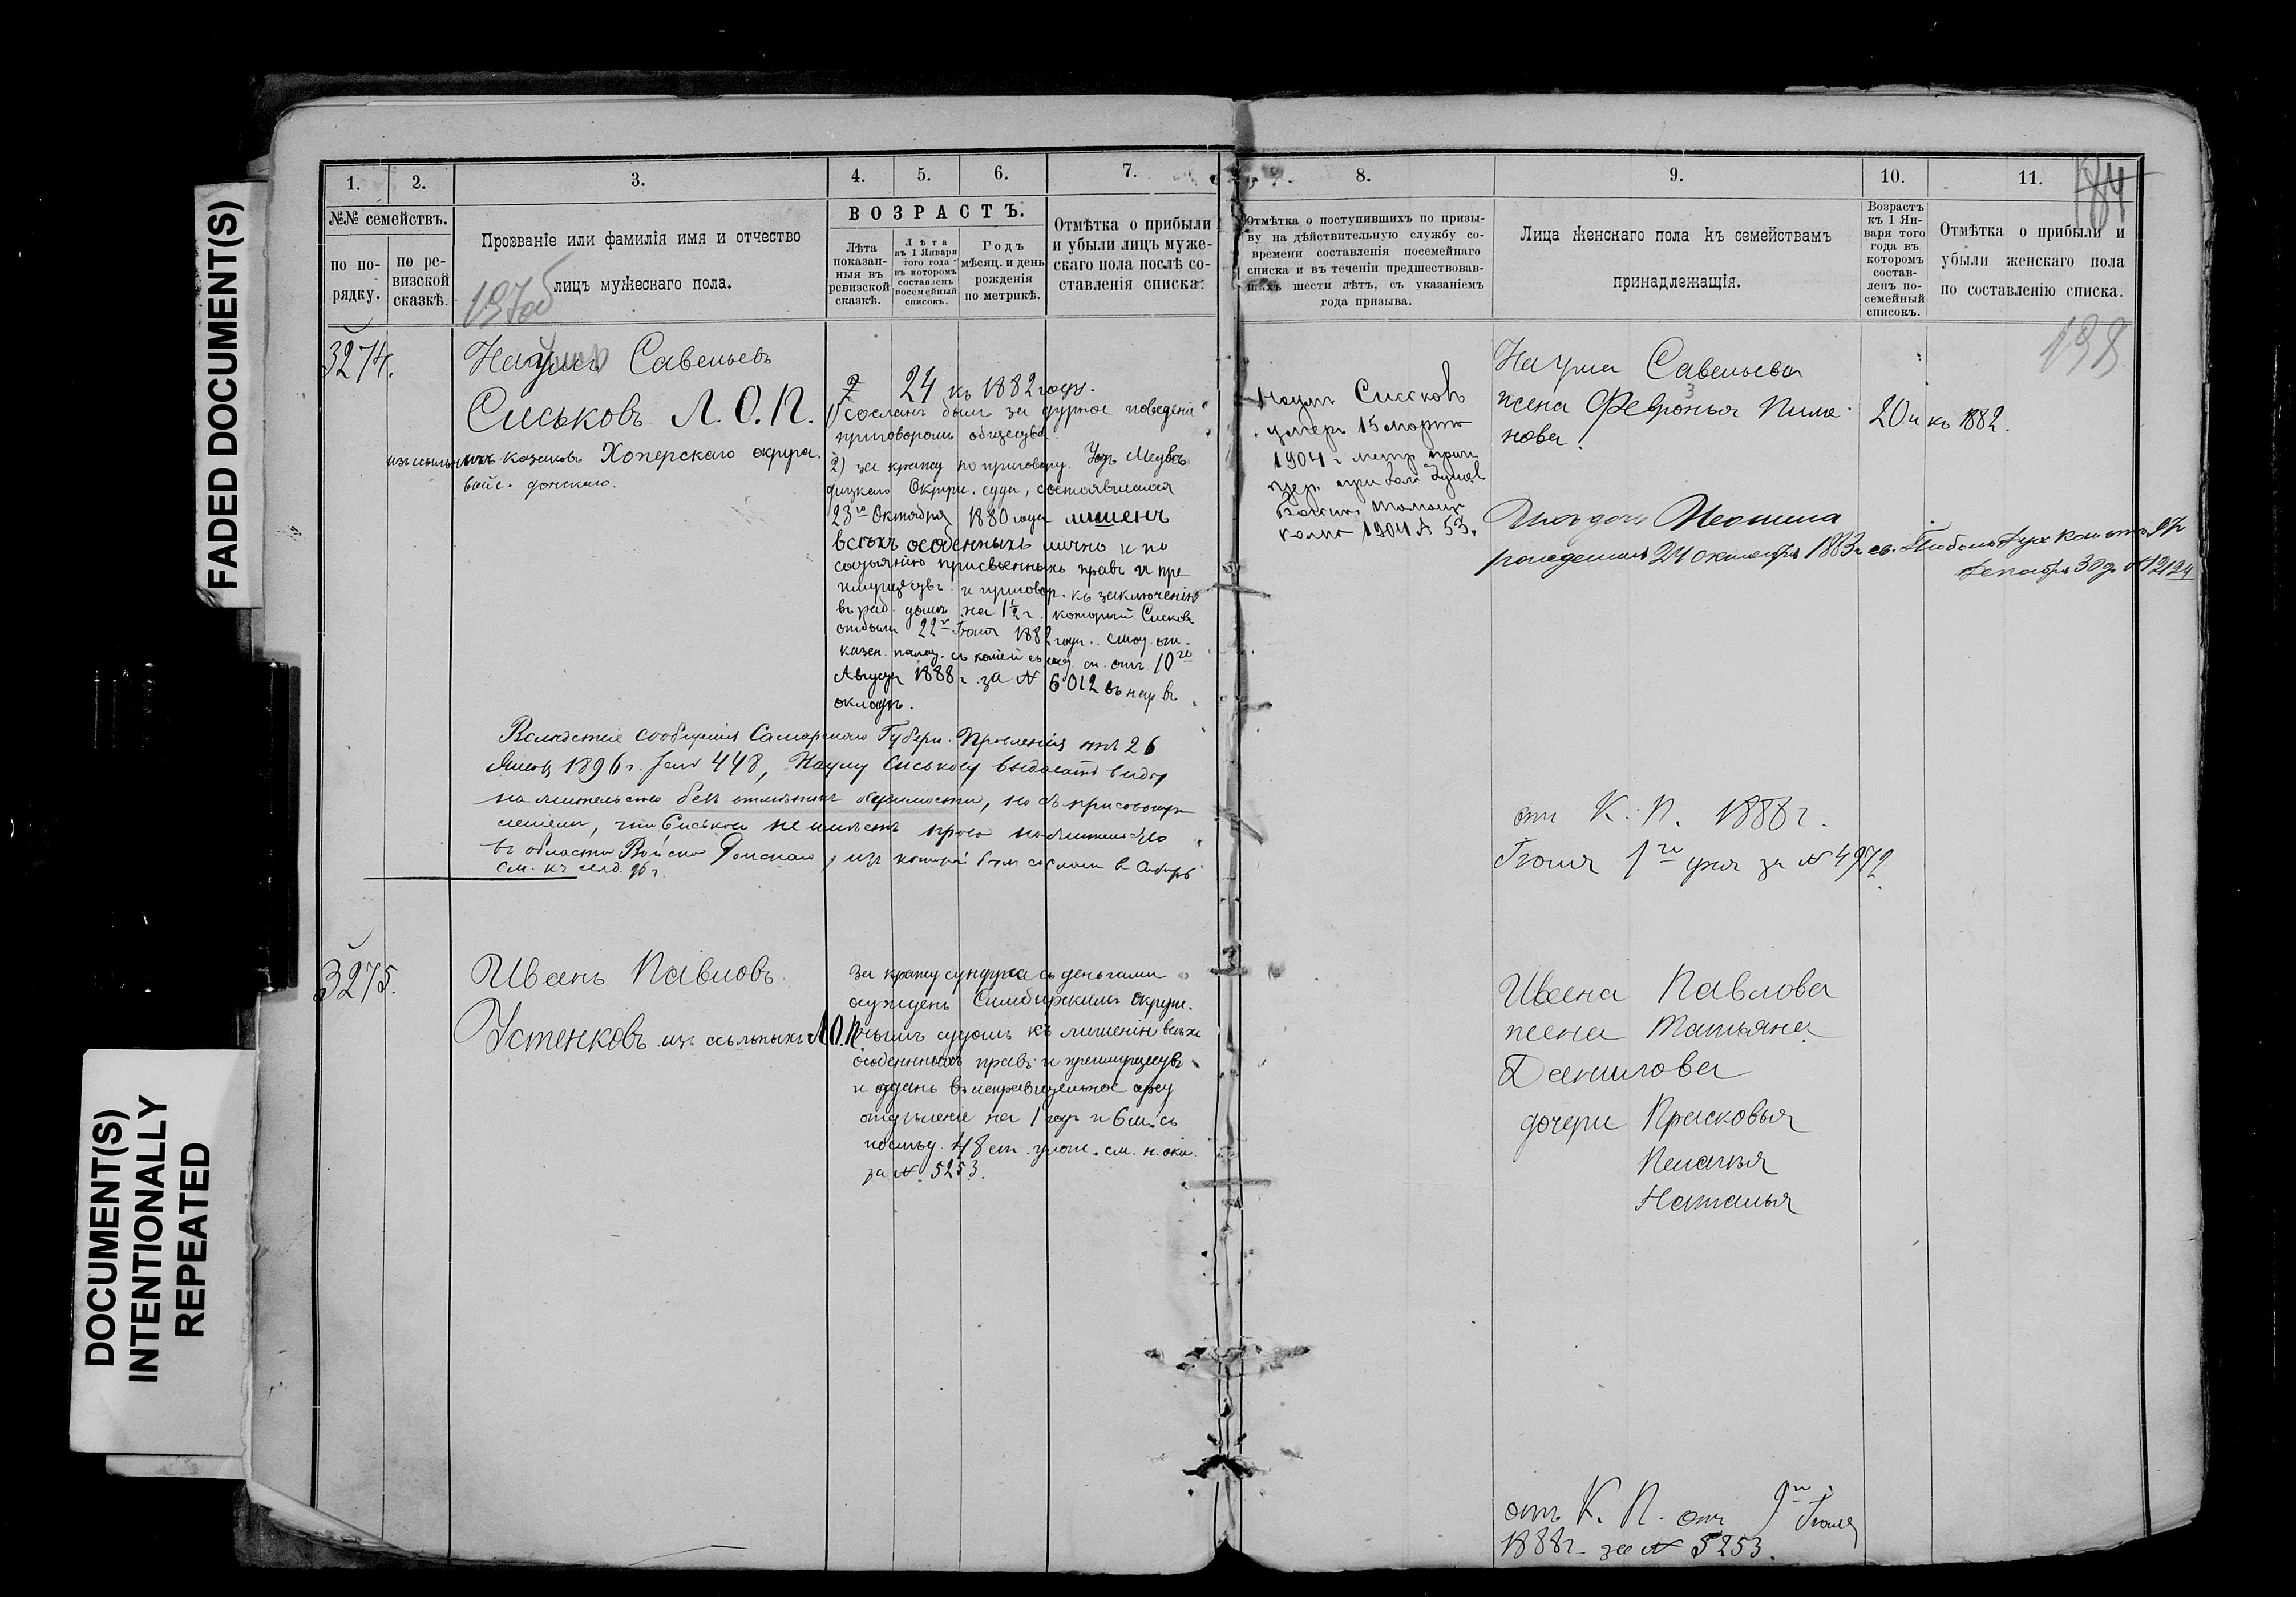 FADED DOCUMENT(S)
DOCUMENT(S)
INTENTIONALLY
REPEATED
1.
2.
3.
4.
5.
6.
7.
№№ семействъ.
по по-
рядку.
по ре-
визской
сказкѣ.
Прозваніе или фамилія имя и отчество
лицъ мужескаго пола.
197об
ВОЗРАСТЪ.
Лѣта
показан-
ныя въ
ревизской
сказкѣ.
Лѣта
къ 1 Января
того года
въ которомъ
составленъ
посемейный
списокъ.
Годъ
мѣсяц. и день
рожденія
по метрикѣ.
Отмѣтка о прибыли
и убыли лицъ муже-
скаго пола послѣ со-
ставленія списка.
3274.
Наумъ Савельевъ
Сиськовъ Л.О.П.
изъ ссыльныхъ казаковъ Хоперскаго округа
войс. донскаго.
24 къ 1882 году.
1) сосланъ былъ за дурное поведеніе
приговоромъ общества.
2) за кражу по приговору Усть Медвѣ
дицкаго Окруж. суда, состоявшагося
23го Октября 1880 года лишенъ
всѣхъ особенныхъ лично и по
состоянію присвоенныхъ правъ и пре
имуществъ и приговор. къ заключенію
въ раб. домъ на 1½ г. который Сиськовъ
отбылъ 22го Іюля 1882 года.
казен. палат. отъ 10го
Августа 1888 г. за № 6012
окладъ.
Вслѣдствіе сообщенія Самарскаго Губерн. Правленія отъ 26
1896 г. за № 448, Науму Сиськову выдавать виды
на жительство безъ отмѣтокъ о судимости, но съ присовокуп
леніемъ, что Сиськовъ не имѣетъ права на жительство
въ области Войска Донскаго, изъ которой былъ сосланъ в Сибирь
см. къ 96 г.
3275.
Иванъ Павловъ
Устенковъ изъ ссыльныхъ Л.О.П.
За кражу сундука съ деньгами
осужденъ Симбирскимъ Окруж-
нымъ судомъ къ лишенію всѣхъ
особенныхъ правъ и преимуществъ
и отданъ въ исправительное арес
отдѣленіе на 1 годъ и 6 м. съ
послѣд. 48 ст. улож. см. н.
за № 5253.
8.
9.
10.
11.
184
Отмѣтка о поступившихъ по призы-
ву на дѣйствительную службу со-
времени составленія посемейнаго
списка и въ теченіи предшествовав-
шихъ шести лѣтъ, съ указаніемъ
года призыва.
Лица женскаго пола къ семействамъ
принадлежащія.
Возрастъ
къ 1 Ян-
варя того
года въ
которомъ
состав-
ленъ по-
семейный
списокъ.
Отмѣтка о прибыли и
убыли женскаго пола
по составленію списка.
198
Наумъ Сиськовъ
умеръ 15 марта
1904 г.
1904 № 53.
Наума Савельева
жена Февронья Пиме-
нова
20 и къ 1882.
Ихъ дочь Неонила
рожденная 24 октября 1883 г. св. Тобол. Дух. Конс. 97
Декабря 30 д. № 12124
отъ К. П. 1888 г.
Іюля 1го дня за № 4972
Ивана Павлова
жена Татьяна
Данилова
дочери Прасковья
Пелагея
Наталья
отъ К. П. отъ 9го Іюля
1888 г. за № 5253.